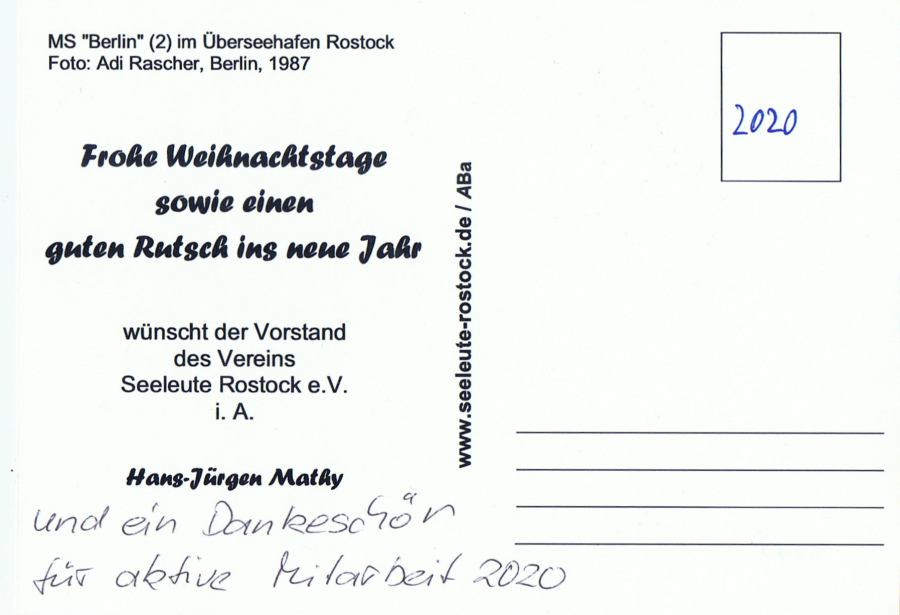 MS "Berlin" (2) im Überseehafen Rostock
Foto: Adi Rascher, Berlin, 1987
Frohe Weihnachtstage
sowie einen
guten Rutsch ins neue Jahr
wünscht der Vorstand
des Vereins
Seeleute Rostock e.V.
i. A.
Hans-Jürgen Mathy
und ein Dankeschön
für aktive Mitarbeit 2020
www.seeleute-rostock.de / ABa
2020